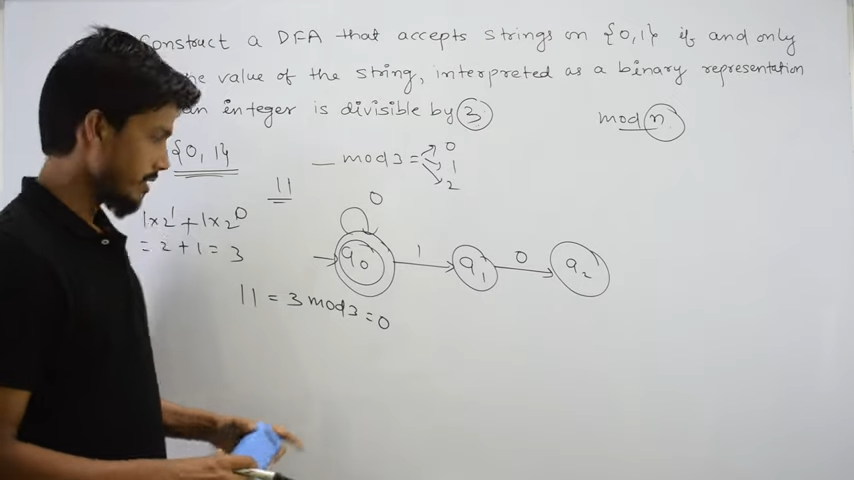 Construct a DFA that accepts strings on {0,1} if and only
he value of the string, interpreted as a binary representation
an integer is divisible by 3.
mod n
{0,1}
— mod 3 = 0
1
2
11
1x2^1 + 1x2^0
= 2 + 1 = 3
0
q0 1 q1 0 q2
11 = 3 mod 3 = 0